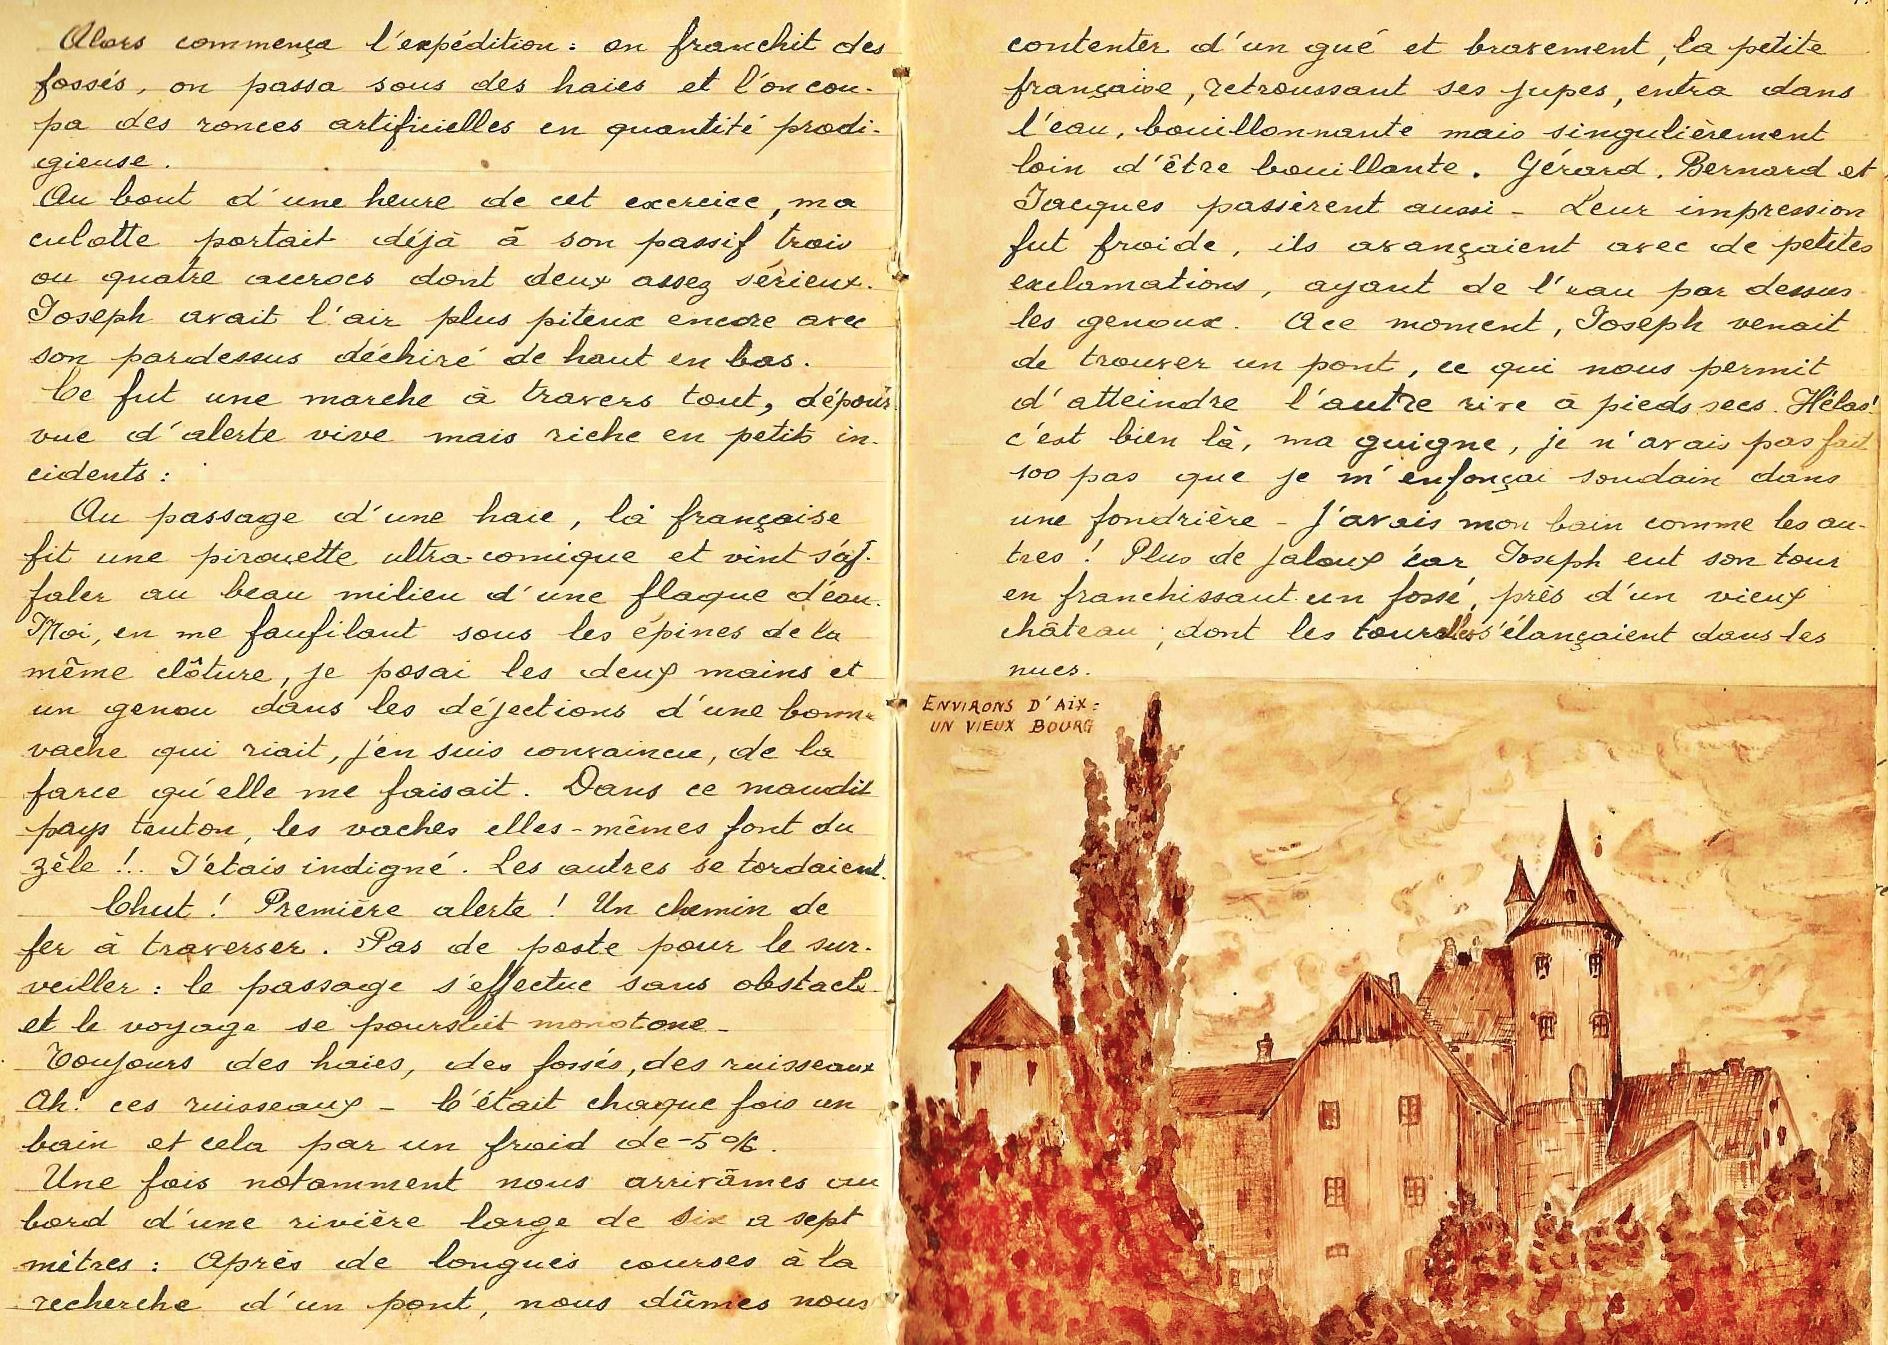 Alors commença l'expédition : on franchit des
fossés, on passa sous des haies et l'on cou-
pa des ronces artificielles en quantité prodi-
gieuse.
Au bout d'une heure de cet exercice, ma
culotte portait déjà à son passif trois
ou quatre accrocs dont deux assez sérieux.
Joseph avait l'air plus piteux encore avec
son pardessus déchiré de haut en bas.
Ce fut une marche à travers tout, dépour-
vue d'alerte vive mais riche en petits in-
cidents :
Au passage d'une haie, la française
fit une pirouette ultra-comique et vint s'af-
faler au beau milieu d'une flaque d'eau.
Moi, en me faufilant sous les épines de la
même clôture, je posai les deux mains et
un genou dans les déjections d'une bonne
vache qui riait, j'en suis convaincu, de la
farce qu'elle me faisait. Dans ce maudit
pays teuton, les vaches elles-mêmes font du
zèle !.. J'étais indigné. Les autres se tordaient.
Chut ! Première alerte ! Un chemin de
fer à traverser. Pas de poste pour le sur-
veiller : le passage s'effectue sans obstacle
et le voyage se poursuit monotone -
Toujours des haies, des fossés, des ruisseaux
Ah! ces ruisseaux - C'était chaque fois un
bain et cela par un froid de -5%.
Une fois notamment nous arrivâmes au
bord d'une rivière large de six a sept
mètres : Après de longues courses à la
recherche d'un pont, nous dûmes nous
contenter d'un gué et bravement, la petite
française, retroussant ses jupes, entra dans
l'eau, bouillonnante mais singulièrement
loin d'être bouillante. Gérard, Bernard et
Jacques passèrent aussi - Leur impression
fut froide, ils avançaient avec de petites
exclamations, ayant de l'eau par dessus
les genoux. A ce moment, Joseph venait
de trouver un pont, ce qui nous permit
d'atteindre l'autre rive à pieds secs. Hélas!
c'est bien là, ma guigne, je n'avais pas fait
100 pas que je m'enfonçai soudain dans
une fondrière - J'avais mon bain comme les au-
tres ! Plus de jaloux car Joseph eut son tour
en franchissant un fossé, près d'un vieux
château, dont les tourelles s'élançaient dans les
nues.
ENVIRONS D'AIX :
UN VIEUX BOURG